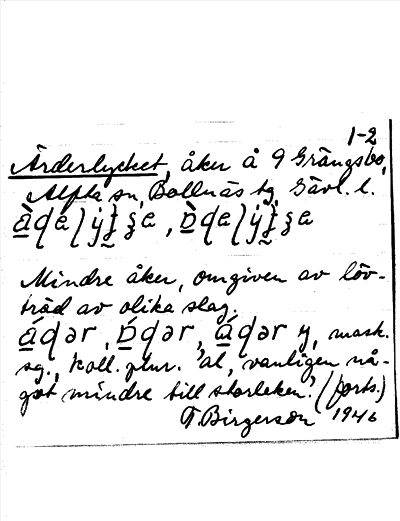 1-2
Ärderlycket, åker å 9 Grängsbo,
Alfta sn, Bollnäs tg, Gävl. l.
Mindre åker, omgiven av löv-
träd av olika slag.
mask.
sg., koll. plur. 'al, vanligen nå-
got mindre till storleken.' (forts.)
T Birgerson 1946